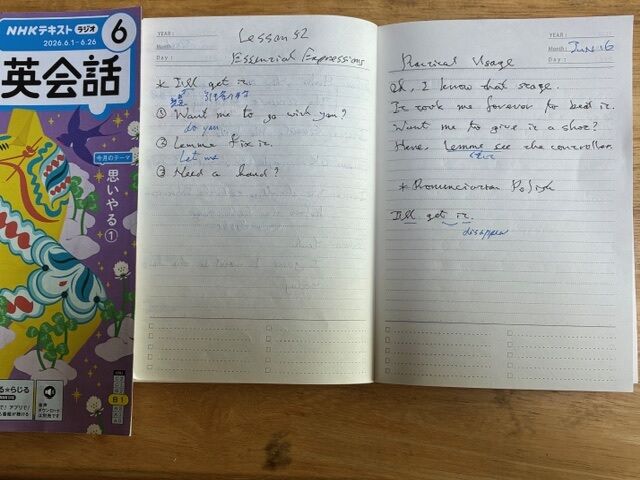 NHKテキスト ラジオ
2026.6.1→6.26
6
英会話
今月のテーマ
思いやる①
B1
YEAR:
Month
DAY:
Lesson 52
Essential Expressions
* I'll get it.
引き受ける
① Want me to go with you?
Do you
② Lemme fix it.
Let me
③ Need a hand?
YEAR:
Month Jun 16
DAY:
Practical Usage
Oh, I know that stage.
It took me forever to beat it.
Want me to give it a shot?
Here, Lemme see the controller.
* Pronunciation Polish
I'll get it.
disappear